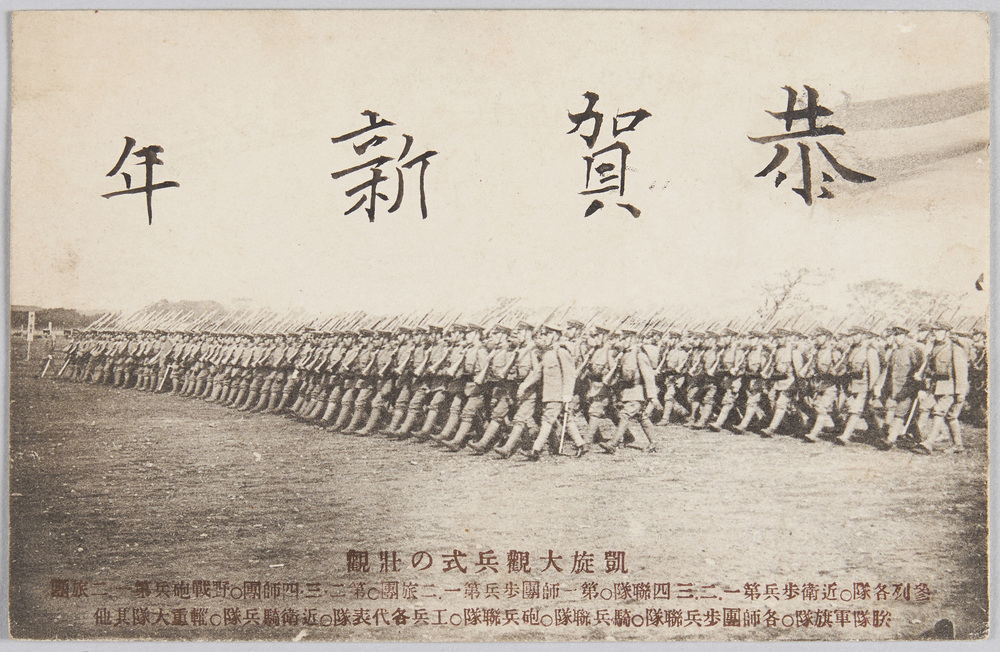 恭賀新年
凱旋大觀兵式の壯觀
參列各隊○近衛歩兵第一、二、三、四聯隊○第一師團歩兵第一、二旅團○第二・三・四師團○野戰砲兵第一、二旅團
隊軍旗隊○各師團歩兵聯隊○騎兵聯隊○砲兵聯隊○工兵各代表隊○近衛騎兵隊○輜重大隊其他